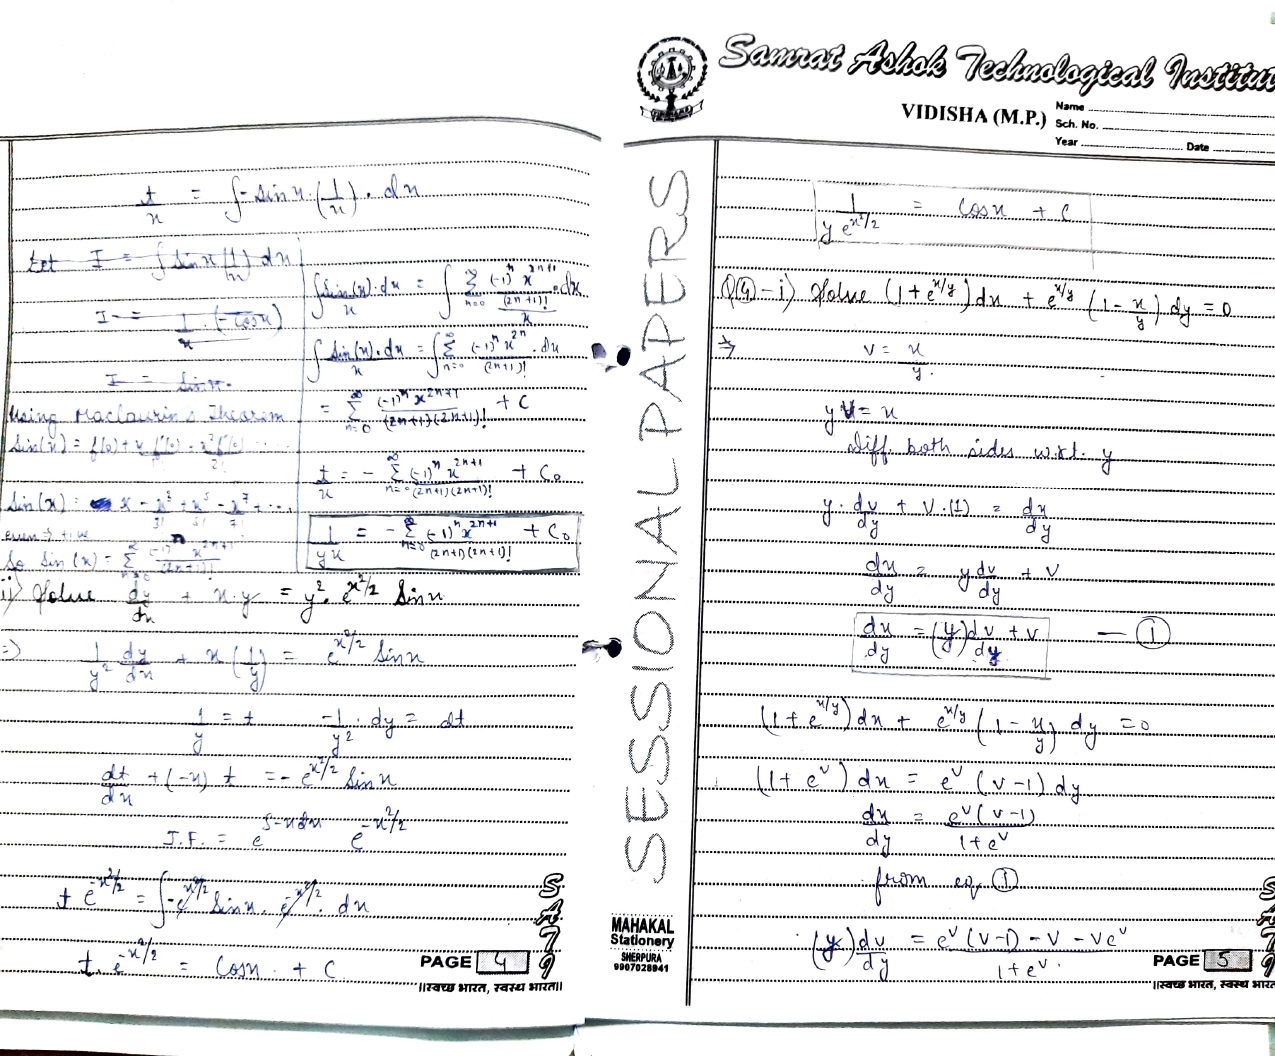 t/x = ∫ - sin x (1/x) . dx
Let I = ∫ sin x (1/x) dx
I = 1/x . (-cos x)
I = sin x.
Using Maclaurin's Theorem
Sin(x) = f(0) + x f'(0) - x² f''(0) .....
Sin(x) = x - x³/3! + x⁵/5! - x⁷/7! + ....
So Sin(x) = ∞ Σ n=0 (-1)ⁿ x²ⁿ⁺¹/(2n+1)!
∫ sin(x)/x . dx = ∫ ∞ Σ n=0 (-1)ⁿ x²ⁿ⁺¹/(2n+1)!/x . dx
∫ sin(x)/x . dx = ∫ ∞ Σ n=0 (-1)ⁿ x²ⁿ/(2n+1)! . dx
= ∞ Σ n=0 (-1)ⁿ x²ⁿ⁺¹/(2n+1)(2n+1)! + C
t/x = - ∞ Σ n=0 (-1)ⁿ x²ⁿ⁺¹/(2n+1)(2n+1)! + C₀
1/yx = - ∞ Σ n=0 (-1)ⁿ x²ⁿ⁺¹/(2n+1)(2n+1)! + C₀
ii) Solve dy/dx + x.y = y². e^(x²/2) Sin x
=> 1/y² dy/dx + x (1/y) = e^(x²/2) Sin x
1/y = t   -1/y² . dy = dt
dt/dx + (-x) t = - e^(x²/2) Sin x
I.F. = e^(∫-xdx) e^(-x²/2)
t e^(-x²/2) = ∫ -e^(x²/2) Sin x. e^(-x²/2). dx
t. e^(-x²/2) = Cos x . + C
PAGE 4
SA79
॥स्वच्छ भारत, स्वस्थ भारत॥
SESSIONAL PAPERS
MAHAKAL
Stationery
SHERPURA
9907028941
Samrat Ashok Technological Institut
VIDISHA (M.P.)
Name
Sch. No.
Year Date
1/(y e^(x²/2)) = Cos x + C
Q④-i) Solve (1+e^(x/y)) dx + e^(x/y) (1- x/y) dy = 0
=> v = x/y.
yv = x
Diff. both sides w.r.t. y
y. dv/dy + v.(1) = dx/dy
dx/dy = y dv/dy + v
dx/dy = (y) dv/dy + v — ①
(1+e^(x/y)) dx + e^(x/y) (1- x/y) dy = 0
(1+e^v) dx = e^v (v-1) dy
dx/dy = e^v (v-1)/1+e^v
from eq. ①
(y) dv/dy = e^v (v-1) - v - ve^v/1+e^v.
PAGE 5
SA79
॥स्वच्छ भारत, स्वस्थ भारत